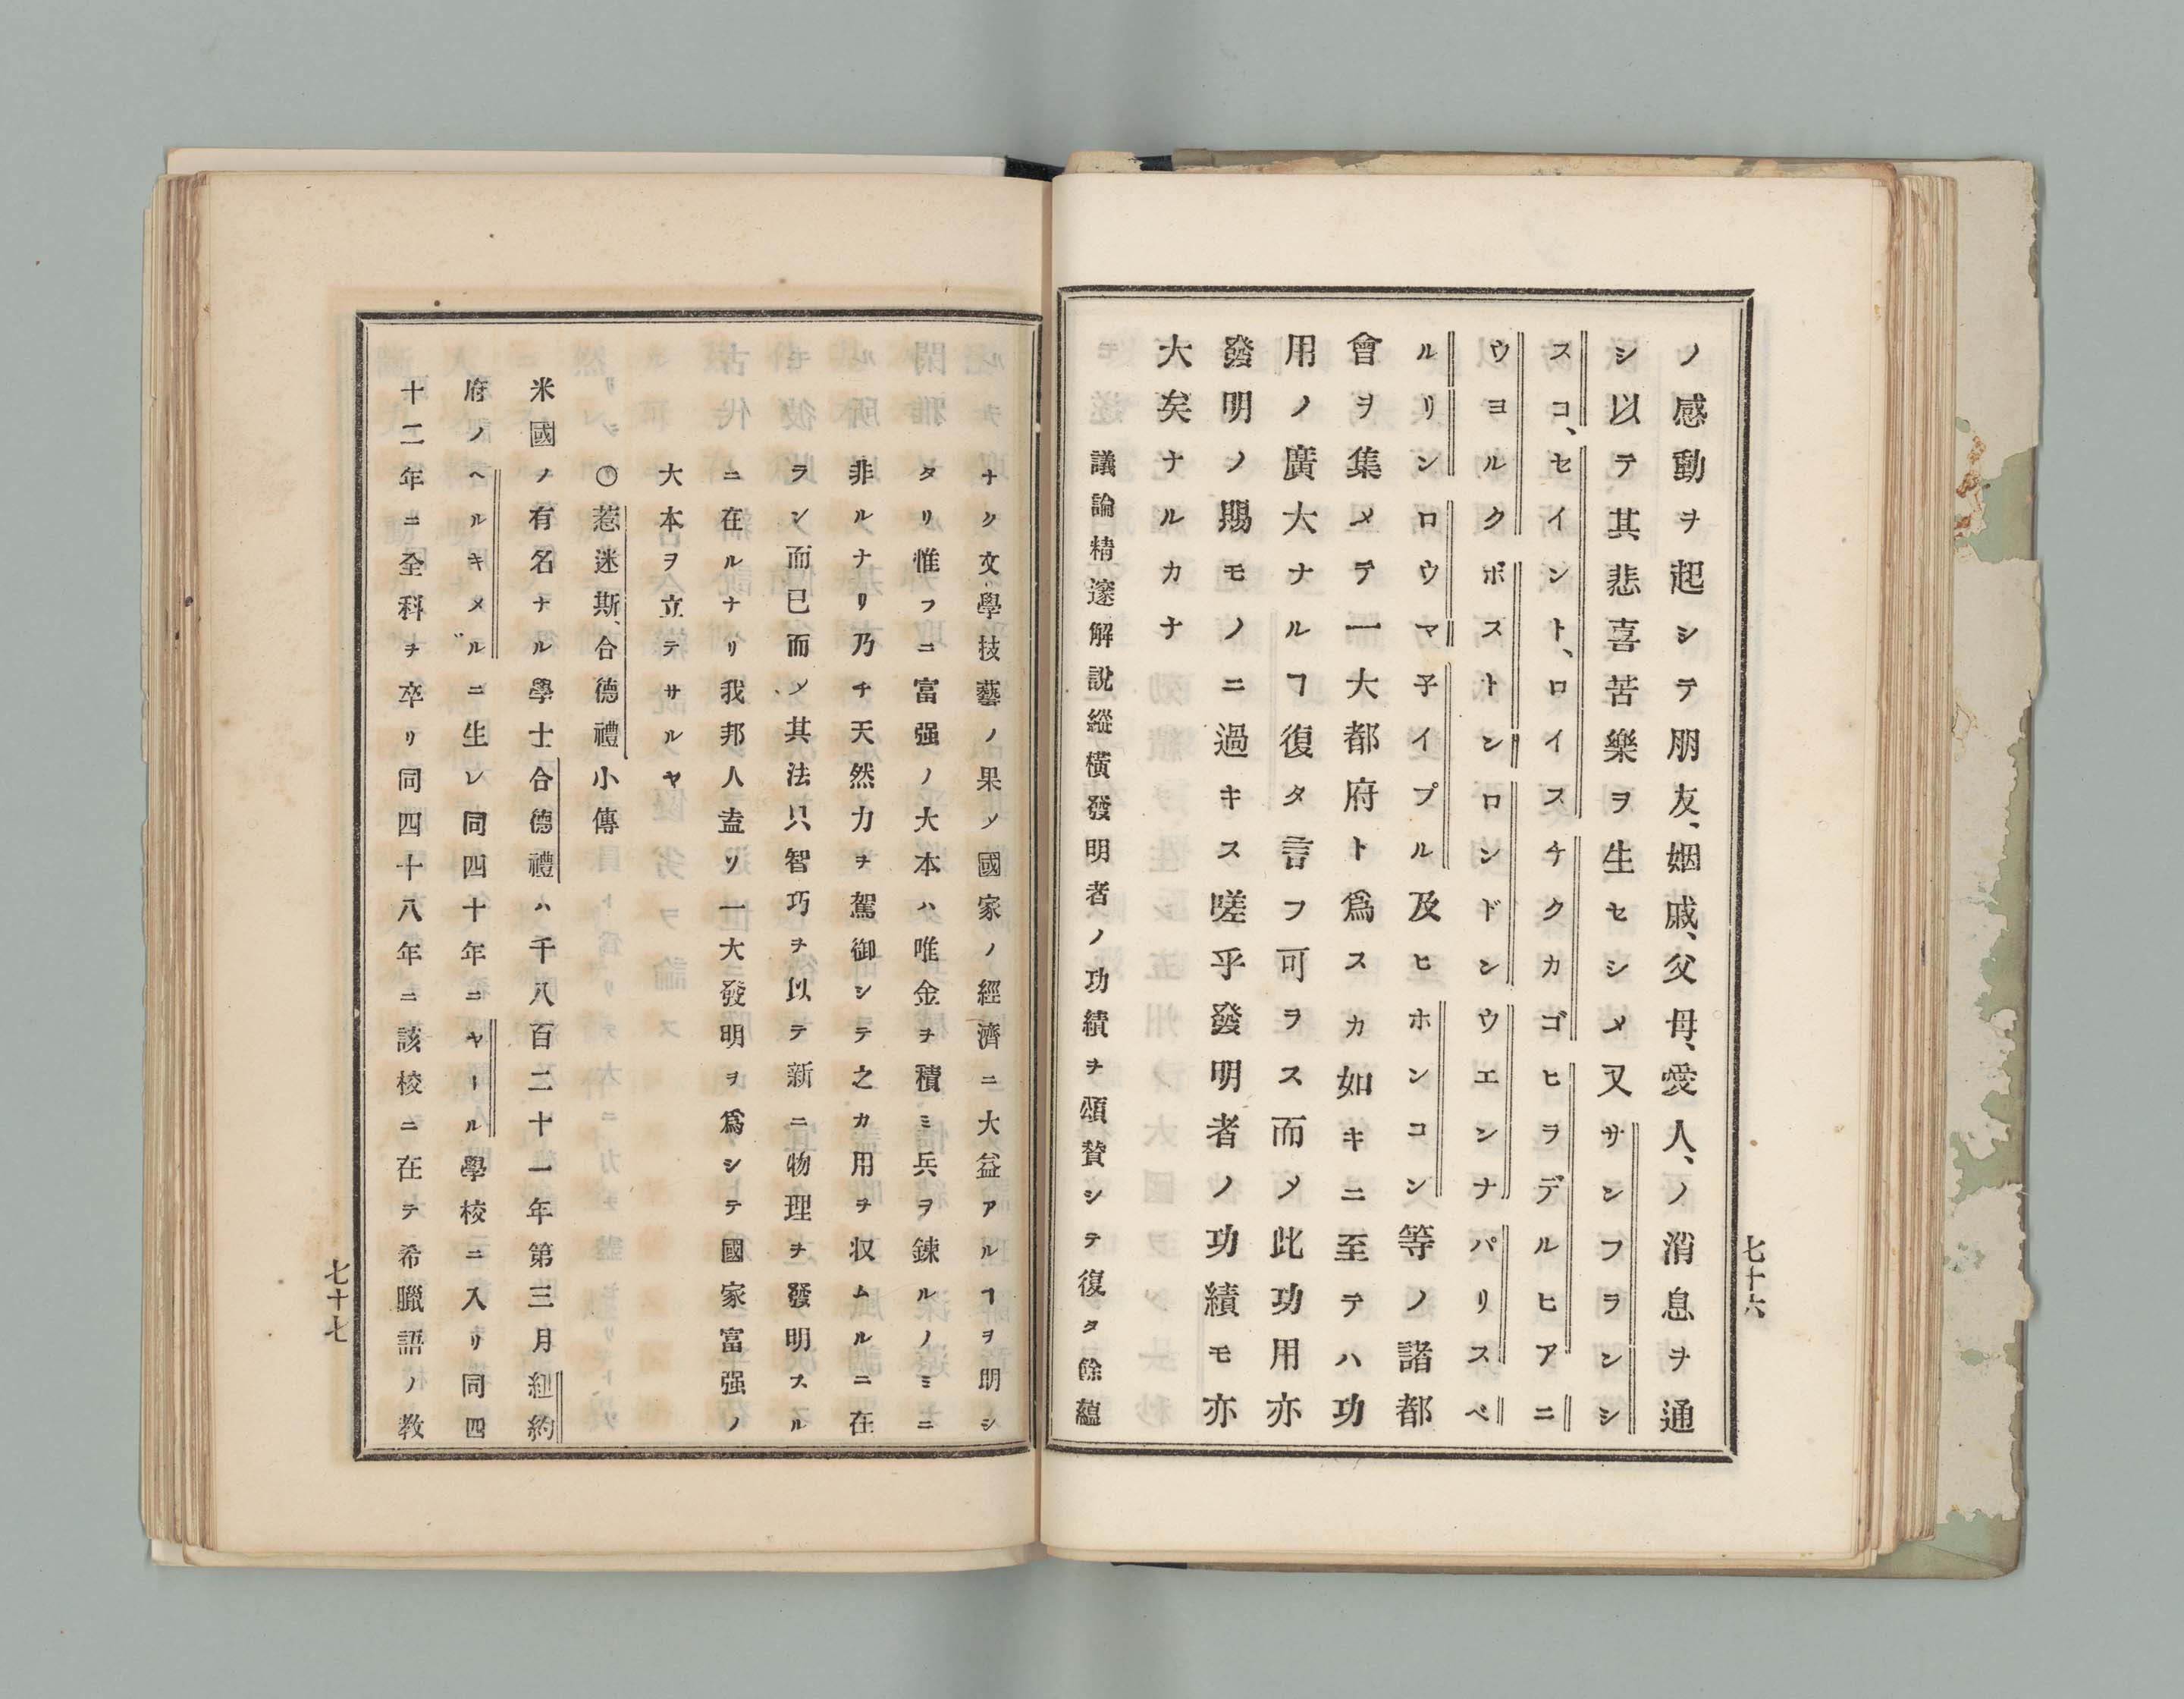 ノ感動ヲ起シテ朋友、姻戚、父母、愛人、ノ消息ヲ通
シ以テ其悲喜苦樂ヲ生セシメ又サンフランシ
スコ、セイント、ロイスチクカゴヒラデルヒアニ
ウヨルクボストンロンドンウエンナパリスベ
ルリンロウマ子イプル及ヒホンコン等ノ諸都
會ヲ集メテ一大都府ト爲スカ如キニ至テハ功
用ノ廣大ナルヿ復タ言フ可ラス而メ此功用亦
發明ノ賜モノニ過キス嗟乎發明者ノ功績モ亦
大矣ナルカナ
議論精邃解說縱橫發明者ノ功績ヲ頌賛シテ復タ餘蘊
七十六
ナク文學技藝ノ果メ國家ノ經濟ニ大益アルヿヲ明シ
タリ惟フニ富强ノ大本ハ唯金ヲ積ミ兵ヲ錬ルノミニ
非ルナリ乃チ天然力ヲ駕御シテ之カ用ヲ収ムルニ在
ラン而已而メ其法只智巧ヲ以テ新ニ物理ヲ發明スル
ニ在ルナリ我邦人盍リ一大發明ヲ爲シテ國家富强ノ
大本ヲ立テサルヤ
〇惹迷斯、合德禮小傳
米國ノ有名ナル學士合德禮ハ千八百二十一年第三月紐約
府ノヘルキメルニ生レ同四十年ニヤールル學校ニ入リ同四
十二年ニ全科ヲ卒リ同四十八年ニ該校ニ在テ希臘語ノ敎
七十七